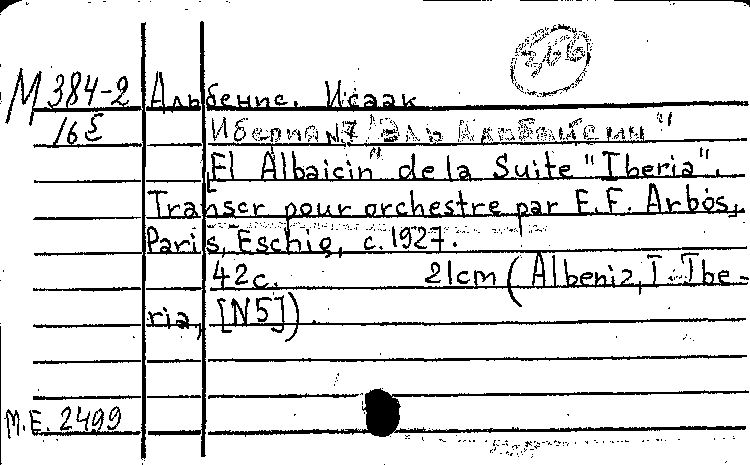 М 384-2 Альбенис, Исаак
16
Иберия N7 /Эль Альбайсин"
"El Albaicin" de la Suite "Iberia".
Transcr pour orchestre par E.F. Arbós,
Paris, Eschig, c.1927.
42c. 21cm (Albeniz, I. Ibe-
ria, [N5]).
M.E. 2499